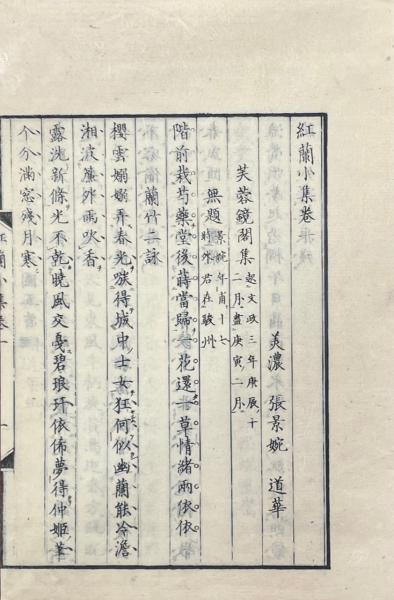 紅蘭小集卷
美濃 張景婉 道華
芙蓉鏡閣集 起文政三年庚辰十二月盡庚寅二月
無題 景婉年甫十七時外君在駿州
階前栽芍藥堂後蒔當歸一花還一草情緒兩依依
蘭竹二詠
櫻雲嫋嫋弄春光簇得城中士女狂何似幽蘭能冷澹
湘波簾外雨吹香
露洗新條光不乾曉風交戛碧琅玕依佈夢得仲姬筆
个分滿窓殘月寒